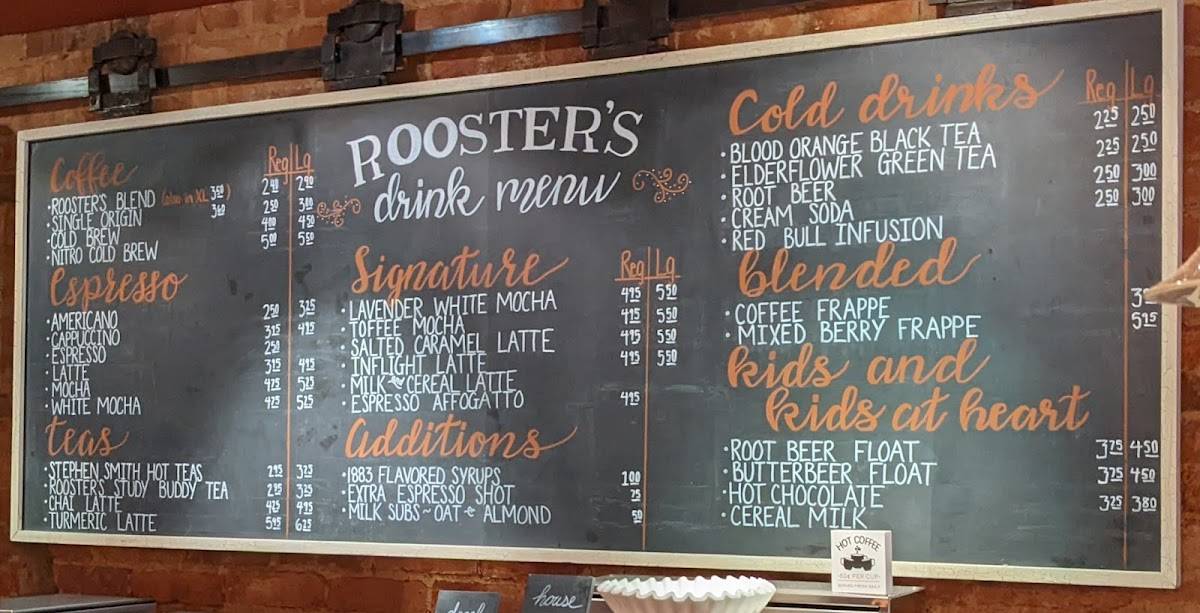 ROOSTER'S
drink menu
Coffee Reg Lg
·ROOSTER'S BLEND (also in XL 3
·SINGLE ORIGIN
·COLD BREW 4 4
·NITRO COLD BREW 5 5
Espresso
·AMERICANO 250 325
·CAPPUCCINO 375 475
·ESPRESSO 250
·LATTE
·MOCHA 475 525
·WHITE MOCHA 475 525
Teas
·STEPHEN SMITH HOT TEAS 295 325
·ROOSTERS STUDY BUDDY TEA 295 325
·CHAI LATTE 425 495
·TURMERIC LATTE 595 625
Signature Reg Lg
·LAVENDER WHITE MOCHA 495 550
·TOFFEE MOCHA 495 550
·SALTED CARAMEL LATTE 495 550
·INFLIGHT LATTE 495 550
·MILK & CEREAL LATTE
·ESPRESSO AFFOGATTO 495
Additions
·1883 FLAVORED SYRUPS 100
·EXTRA ESPRESSO SHOT 75
·MILK SUBS~OAT & ALMOND 50
Cold drinks Reg Lg
·BLOOD ORANGE BLACK TEA 225 250
·ELDERFLOWER GREEN TEA 225 250
·ROOT BEER 250 300
·CREAM SODA 250 300
·RED BULL INFUSION
blended
·COFFEE FRAPPE
·MIXED BERRY FRAPPE 575
kids and
kids at heart
·ROOT BEER FLOAT 375 450
·BUTTERBEER FLOAT 375 450
·HOT CHOCOLATE 325 380
·CEREAL MILK
HOT COFFEE
50¢ PER CUP
house